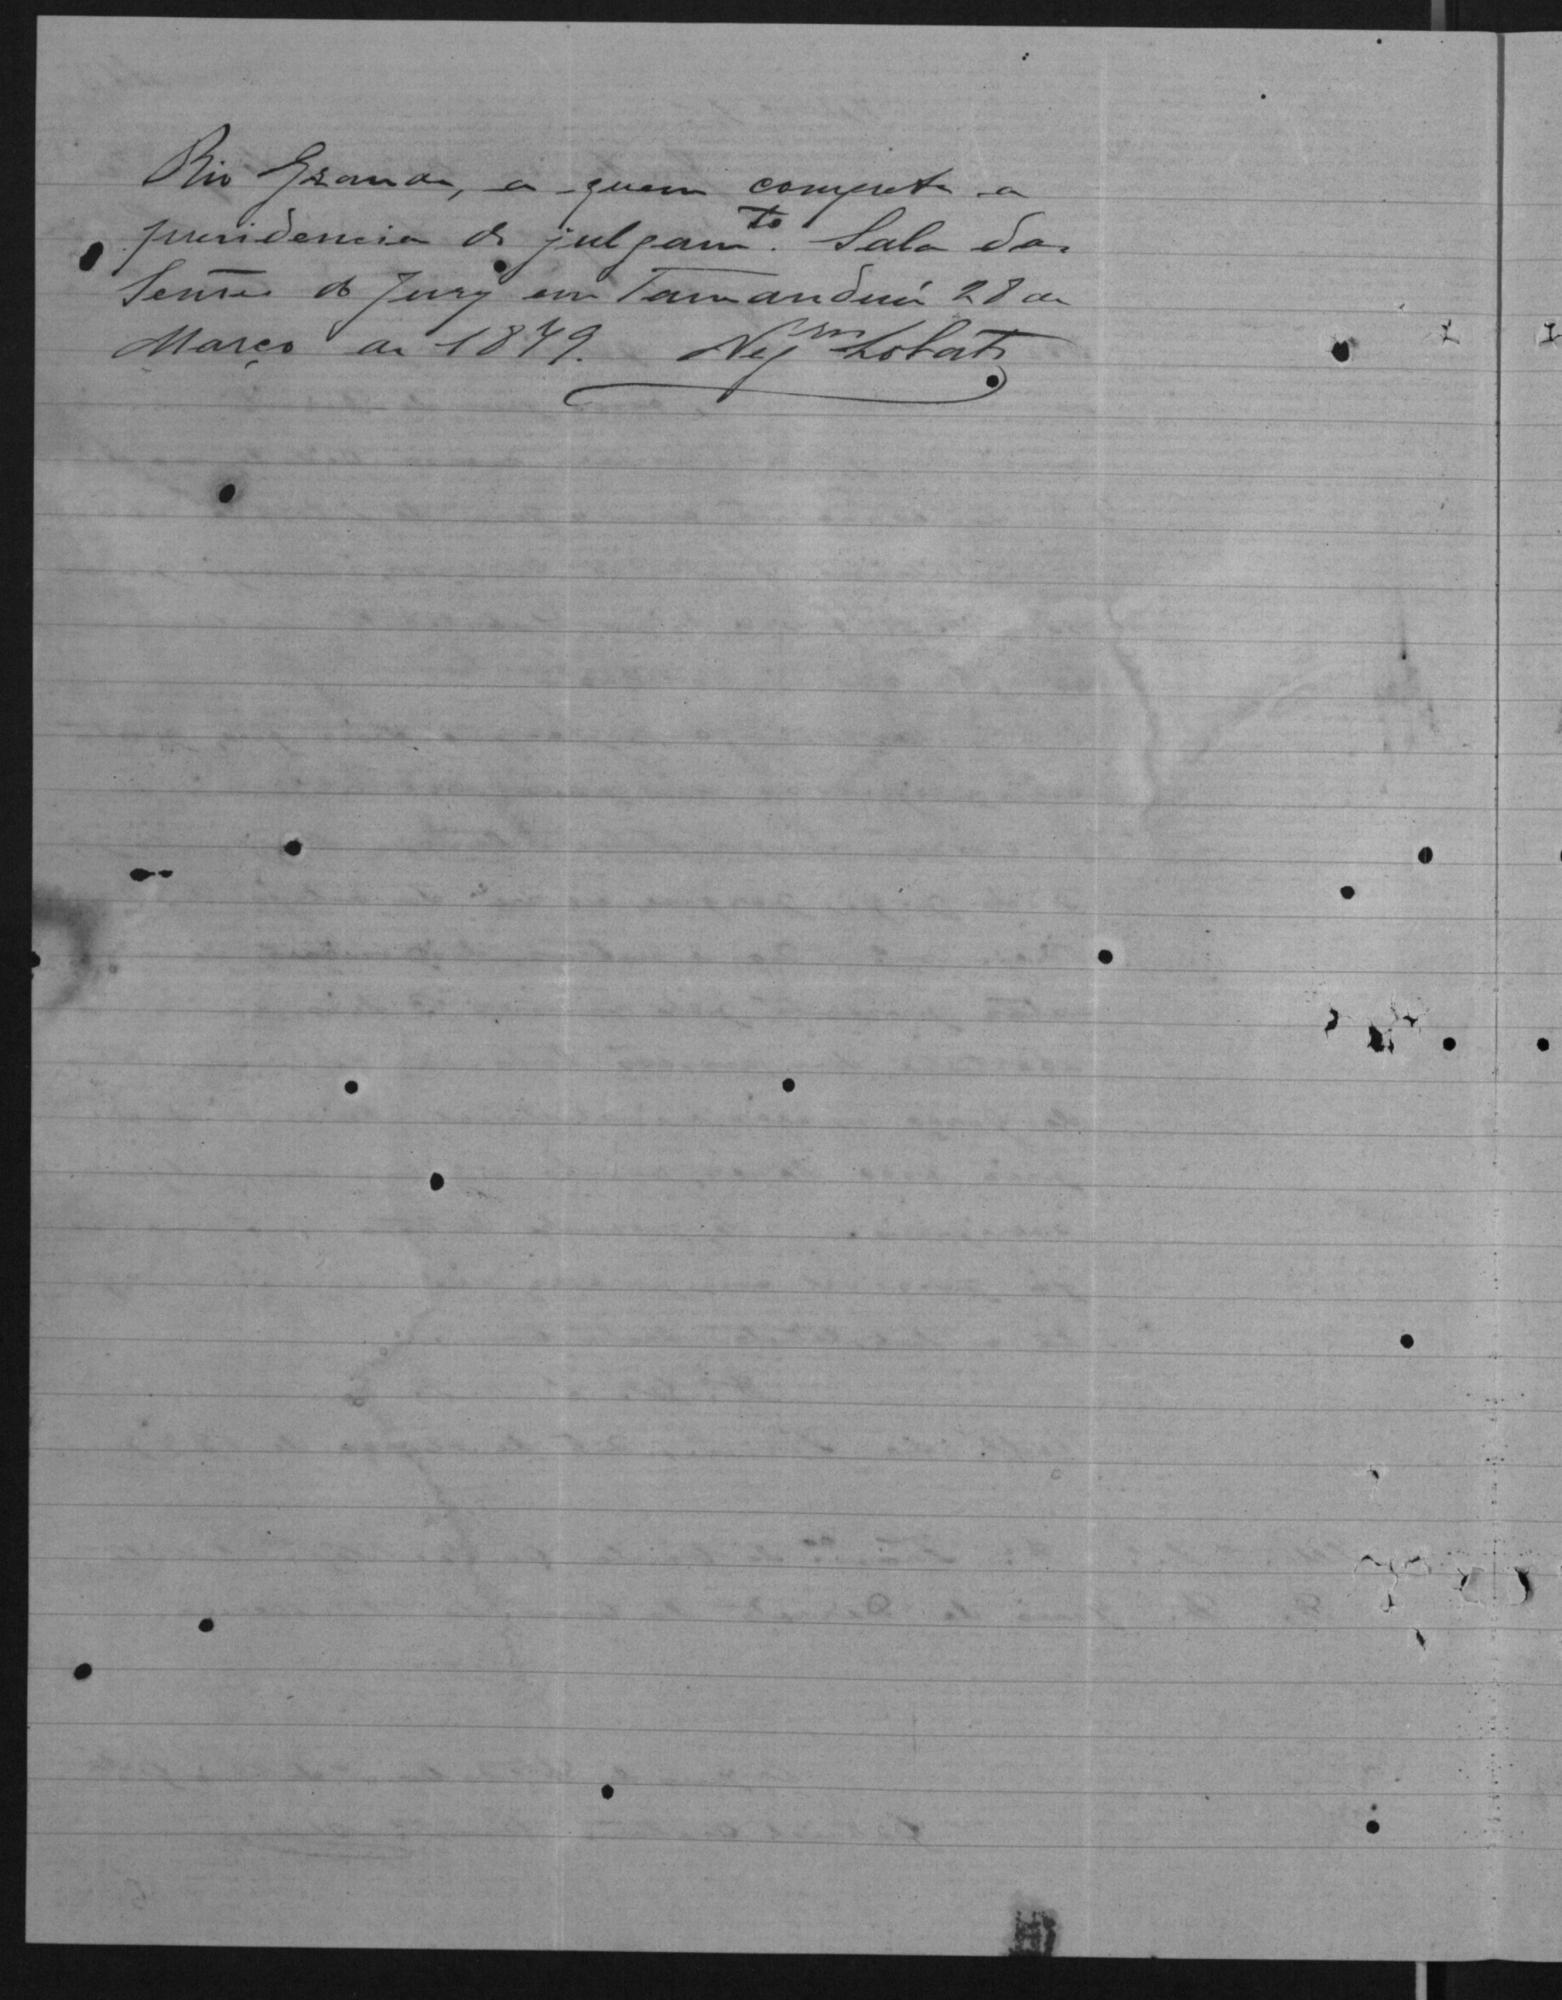 Rio Grande, a quem compete a
presidencia do julgam.to Sala das
Sessões do Jury em Tamanduá 28 de
Março de 1879. Lobato